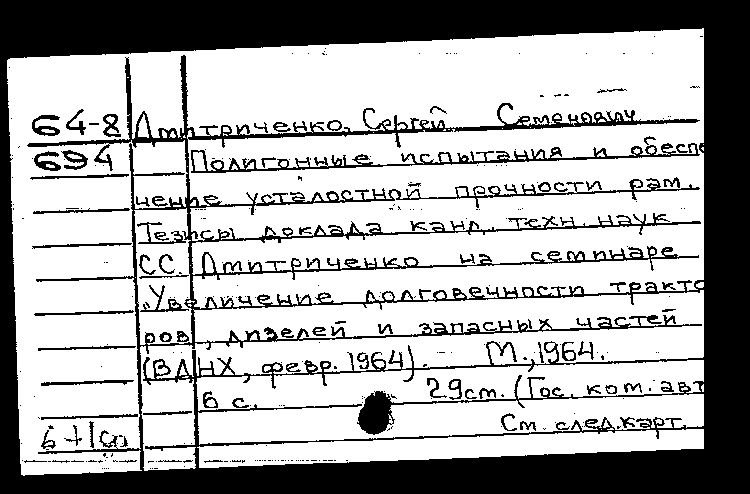 64-8 Дмитриченко, Сергей Семенович
694 Полигонные испытания и обеспе
чение усталостной прочности рам.
Тезисы доклада канд. техн. наук
С.С. Дмитриченко на семинаре
„Увеличение долговечности тракто
ров, дизелей и запасных частей
(ВДНХ, февр. 1964). М., 1964.
6 с. 29см. (Гос. ком. авт
См. след. карт.